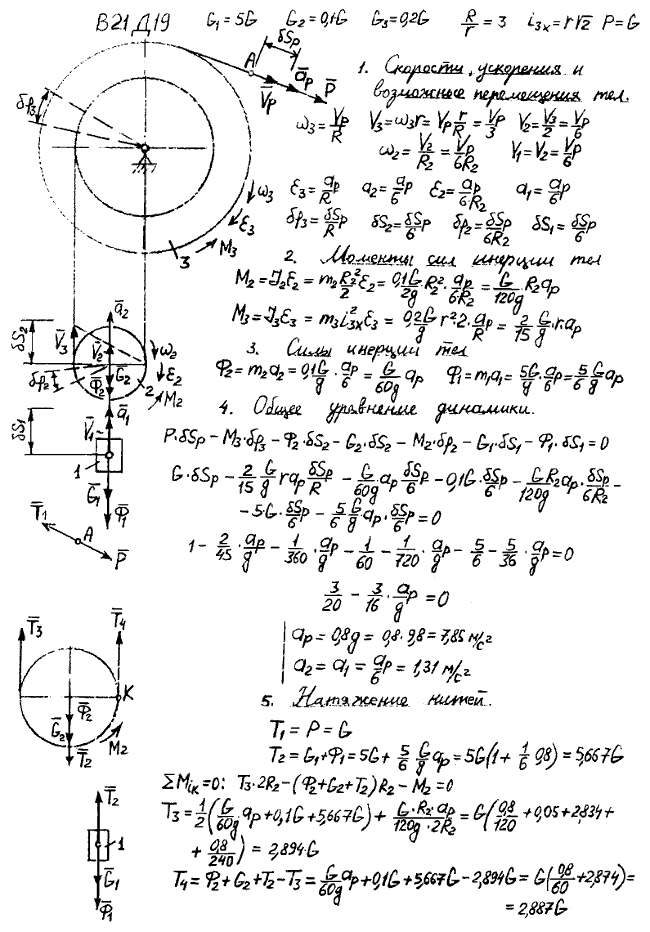 В21 Д19 G₁ = 5G G₂ = 0,1G G₃ = 0,2G R/r = 3 i₃ₓ = r√2 P = G
δSp
A
āp
V̄p
P̄
δφ₃
1. Скорости, ускорения и
возможное перемещения тел.
ω₃ = Vp/R V₃ = ω₃r = Vp r/R = Vp/3 V₂ = V₃/2 = Vp/6
ω₂ = V₂/R₂ = Vp/6R₂ V₁ = V₂ = Vp/6
ω₃
ε₃
M₃
3
ε₃ = ap/R a₂ = ap/6 ε₂ = ap/6R₂ a₁ = ap/6
δφ₃ = δSp/R δS₂ = δSp/6 δφ₂ = δSp/6R₂ δS₁ = δSp/6
2. Моменты сил инерции тел
M₂ = J₂ε₂ = m₂ R₂²/2 ε₂ = 0,1G/2g R₂² · ap/6R₂ = G/120g · R₂ap
M₃ = J₃ε₃ = m₃i₃ₓ²ε₃ = 0,2G/g r²·2· ap/R = 2/15 G/g · r·ap
ā₂
δS₂
V̄₃
V̄₂
ω₂
ε₂
δφ₂
Φ̄₂
G₂
2
M₂
3. Силы инерции тел
Φ₂ = m₂a₂ = 0,1G/g · ap/6 = G/60g ap Φ₁ = m₁a₁ = 5G/g · ap/6 = 5/6 G/g ap
ā₁
δS₁
V̄₁
1
Ḡ₁
Φ̄₁
4. Общее уравнение динамики.
P·δSp − M₃·δφ₃ − Φ₂·δS₂ − G₂·δS₂ − M₂·δφ₂ − G₁·δS₁ − Φ₁·δS₁ = 0
G·δSp − 2/15 G/g rap δSp/R − G/60g ap δSp/6 − 0,1G·δSp/6 − GR₂/120g ap · δSp/6R₂ −
− 5G·δSp/6 − 5/6 G/g ap · δSp/6 = 0
T̄₁
A
P̄
1 − 2/45 · ap/g − 1/360 · ap/g − 1/60 − 1/720 · ap/g − 5/6 − 5/36 · ap/g = 0
3/20 − 3/16 · ap/g = 0
ap = 0,8g = 0,8·9,8 = 7,85 м/с²
a₂ = a₁ = ap/6 = 1,31 м/с²
T̄₃
T̄₄
K
Φ̄₂
Ḡ₂
M₂
T̄₂
5. Натяжение нитей.
T₁ = P = G
T₂ = G₁ + Φ₁ = 5G + 5/6 G/g ap = 5G(1 + 1/6 0,8) = 5,667G
ΣMiк = 0: T₃·2R₂ − (Φ₂ + G₂ + T₂)R₂ − M₂ = 0
T₃ = 1/2 (G/60g ap + 0,1G + 5,667G) + G·R₂·ap/120g·2R₂ = G(0,8/120 + 0,05 + 2,834 +
+ 0,8/240) = 2,894·G
T₄ = Φ₂ + G₂ + T₂ − T₃ = G/60g ap + 0,1G + 5,667G − 2,894G = G(0,8/60 + 2,874) =
= 2,887G
T̄₂
1
Ḡ₁
Φ̄₁